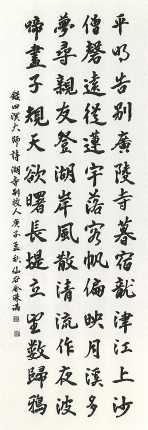 平明告別廣陵寺暮宿龍津江上沙
僧磬遠從蓮宇落客帆偏映月溪多
夢尋親友登湖岸風散清流作夜波
啼盡子規天欲曙長堤立望數歸鴉
錄四溟大師詩湖寺別故人庚子孟秋仙谷金洙滿